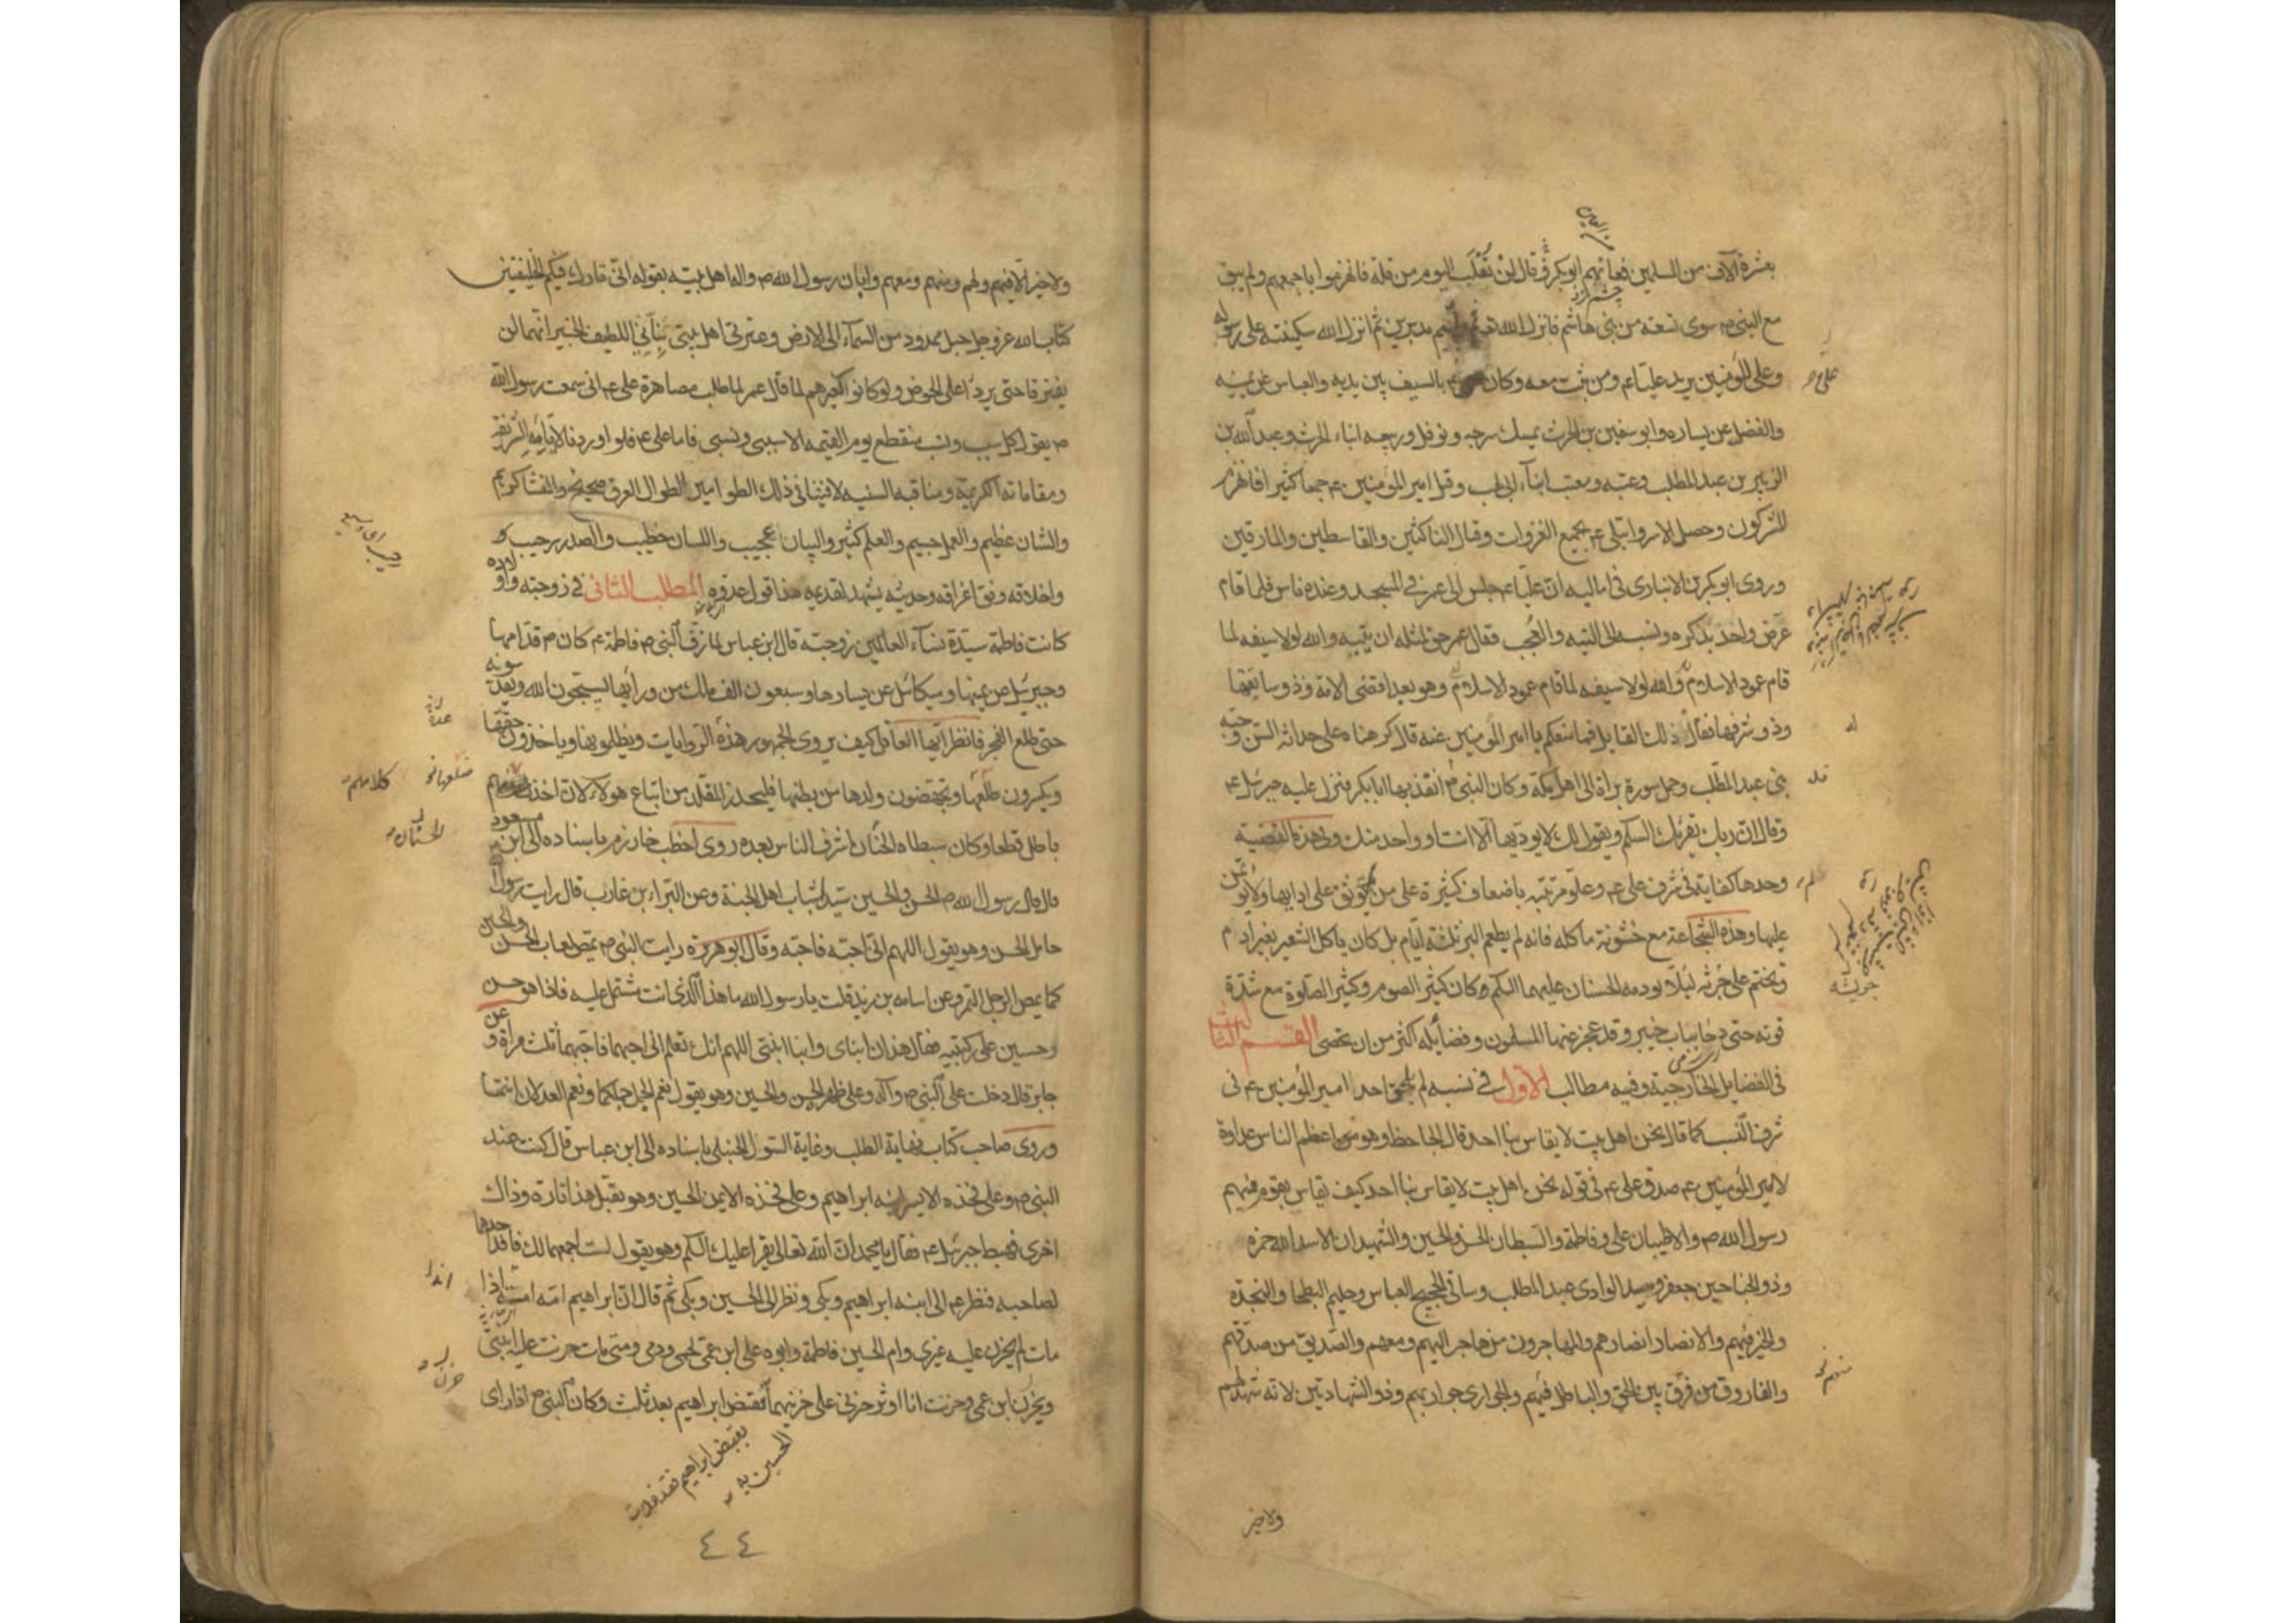 بعشرة آلاف من المسلمين فعانهم ابوبكر و قال لن نغلب اليوم من قلة فانهزموا باجمعهم ولم يبق
مع النبي ص سوى تسعة من بني هاشم فانزل الله تعـ ثم وليتم مدبرين ثم انزل الله سكينته على رسوله
وعلى المؤمنين يريد عليا عم ومن ثبت معه وكان بالسيف بين يديه والعباس عن يمينه
والفضل عن يساره وابو سفين بن الحرث يمسك سرجه ونوفل وربيعه ابناء الحرث وعبد الله بن
الزبير بن عبد المطلب وعتبه ومعتب ابناء ابي لهب وقتل امير المؤمنين عم جمعا كثيرا فانهزم
المشركون وحصل الاسر وابتلى عم بجميع الغزوات وقتال الناكثين والقاسطين والمارقين
وروى ابو بكر بن الانبارى فى اماليه ان عليا عم جلس الى عمر فى المسجد وعنده ناس فلما قام
عرض واحد بذكره ونسبه الى التيه والعجب فقال عمر حق لمثله ان يتيه والله لولا سيفه لما
قام عمود الاسلام وهو بعد اقضى الامة وذو سابقتها
وذو شرفها فقال ذلك القايل فما منعكم يا امير المؤمنين عنه قال كرهناه على حداثه السن وحبه
بنى عبد المطلب وحمل سورة براة الى اهل مكة وكان النبي ص انفذ بها ابا بكر فنزل عليه جبرئيل عم
وقال ان ربك يقرئك السلم ويقول لك لا يوديها الا انت او واحد منك وفى هذه القضية
وحدها كفاية فى شرف على عم وعلو مرتبته باضعاف كثيرة على من لا يوثق على ادايها ولم يؤتمن
عليها وهذه الشجاعة مع خشونة ماكله فانه لم يطعم البر ثلثة ايام بل كان ياكل الشعير بغير ادام
ويختم على جرابه لئلا يودمه الحسنان عليهما السلم وكان كثير الصوم وكثير الصلوة مع شدة
قوته حتى دحا باب خيبر وقد عجز عنها المسلمون وفضايله اكثر من ان تحصى القسم الثالث
فى الفضايل الخارجية وفيه مطالب الاول فى نسبه لم يلحق احد امير المؤمنين عم فى
شرف النسب كما قال نحن اهل بيت لا يقاس بنا احد قال الجاحظ وهو من اعظم الناس عداوة
لامير المؤمنين عم صدق على عم فى قوله نحن اهل بيت لا يقاس بنا احد كيف يقاس بقوم منهم
رسول الله ص والاطيبان على وفاطمة والسبطان الحسن والحسين والشهيدان الاسد الله حمزه
وذو الجناحين جعفر وسيد الوادى عبد المطلب وساقى الحجيج العباس وحليم البطحا والنجدة
والخير فيهم والانصار انصارهم والمهاجرون من هاجر اليهم ومعهم والصديق من صدقهم
والفاروق من فرق بين الحق والباطل فيهم والحوارى حواريهم وذو الشهادتين لانه شهد لهم
ولا خير
ولا خير الا فيهم ولهم ومنهم ومعهم وابان رسول الله ص والها اهل بيته بقوله انى تارك فيكم الخليفتين
كتاب الله عز وجل حبل ممدود من السماء الى الارض وعترتى اهل بيتى نبأنى اللطيف الخبير انهما لن
يفترقا حتى يردا على الحوض ولو كانوا كغيرهم لما قال عمر لما طلب مصاهرة على عم انى سمعت رسول الله
ص يقول كل سبب ونسب منقطع يوم القيمه الا سببى ونسبى فاما على عم فلو اوردنا لايامه الشريفة
ومقاماته الكريمة ومناقبه السنيه لافنينا فى ذلك الطوامير الطوال العرق صحيح والمنشا كريم
والشان عظيم والعمل جسيم والعلم كثير والبيان عجيب واللسان خطيب والصدر رحيب
واخلاقه وفق اعراقه وحديثه يشهد لقديمه هذا قول عدوه المطلب الثانى فى زوجته واولاده
كانت فاطمة سيدة نساء العالمين زوجته قال ابن عباس لما زفت النبى ص فاطمة عم كان ص قدامها
وجبرئيل عن يمينها وميكائيل عن يسارها وسبعون الف ملك من ورائها يسبحون الله ويقدسونه
حتى طلع الفجر فانظر ايها العاقل كيف يروى الجمهور هذه الروايات ويظلمونها وياخذون حقها
ويكسرون ضلعها ويجهضون ولدها من بطنها فليحذر المقلد من اتباع هولاء لان اخذ
باطل قطعا وكان سبطاه الحسنان اشرف الناس بعده روى اخطب خوارزم باسناده الى ابن مسعود
قال قال رسول الله ص الحسن والحسين سيدا شباب اهل الجنة وعن البراء بن عازب قال رايت رسول الله
حامل الحسن وهو يقول اللهم انى احبه فاحبه وقال ابو هريره رايت النبى ص يمص لعاب الحسن والحسين
كما يمص الرجل التمر وعن اسامه بن زيد قلت يا رسول الله ما هذا الذى انت مشتمل عليه فاذا هو حسن
وحسين على ركبتيه فقال هذان ابناى وابنا ابنتى اللهم انك تعلم انى احبهما فاحبهما ثلث مرات وعن
جابر قال دخلت على النبى ص وآله وعلى ظهره الحسن والحسين وهو يقول نعم الجمل جملكما ونعم العدلان انتما
وروى صاحب كتاب نهاية الطلب وغاية السئول الحنبلى باسناده الى ابن عباس قال كنت عند
النبى ص وعلى فخذه الايسر ابنه ابراهيم وعلى فخذه الايمن الحسين وهو يقبل هذا تارة وذاك
اخرى فهبط جبرئيل عم فقال يا محمد ان الله تعالى يقرا عليك السلم وهو يقول لست اجمعهما لك فافد احدهما
لصاحبه فنظر عم الى ابنه ابراهيم وبكى ونظر الى الحسين وبكى ثم قال ان ابراهيم امه امة اذا
مات لم يحزن عليه غيرى وام الحسين فاطمة وابوه على ابن عمى لحمى ودمى ومتى مات حزنت عليه ابنتى
ويحزن ابن عمى وحزنت انا اوثر حزنى على حزنهما فقبض ابراهيم بعد ثلث وكان النبى ص اذا راى
يقبض ابراهيم فقد فديت
الحسين به
٤٤